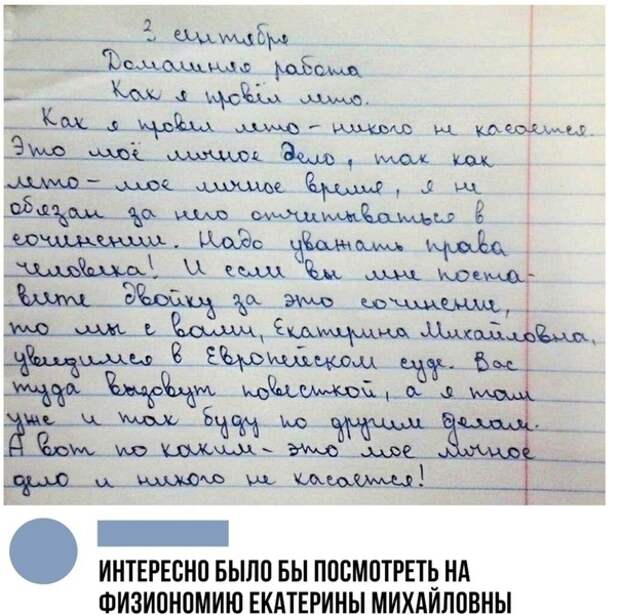 2 сентября
Домашняя работа
Как я провёл лето.
Как я провёл лето - никого не касается.
Это моё личное дело, так как
лето - мое личное время, я не
обязан за него отчитываться в
сочинении. Надо уважать права
человека! И если вы мне поста-
вите двойку за это сочинение,
то мы с вами, Екатерина Михайловна,
увидимся в Европейском суде. Вас
туда вызовут повесткой, а я там
уже и так буду по другим делам.
А вот по каким - это мое личное
дело и никого не касается!
ИНТЕРЕСНО БЫЛО БЫ ПОСМОТРЕТЬ НА
ФИЗИОНОМИЮ ЕКАТЕРИНЫ МИХАЙЛОВНЫ